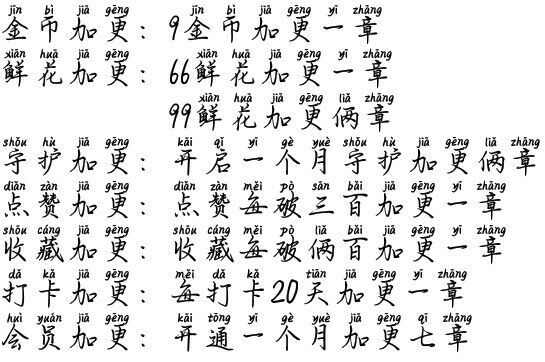 jīn bì jiā gēng jīn bì jiā gēng yī zhāng
金币加更：9金币加更一章
xiān huā jiā gēng xiān huā jiā gēng yī zhāng
鲜花加更：66鲜花加更一章
xiān huā jiā gēng liǎ zhāng
99鲜花加更俩章
shǒu hù jiā gēng kāi qǐ yī gè yuè shǒu hù jiā gēng liǎ zhāng
守护加更：开启一个月守护加更俩章
diǎn zàn jiā gēng diǎn zàn měi pò sān bǎi jiā gēng yī zhāng
点赞加更：点赞每破三百加更一章
shōu cáng jiā gēng shōu cáng měi pò liǎ bǎi jiā gēng yī zhāng
收藏加更：收藏每破俩百加更一章
dǎ kǎ jiā gēng měi dǎ kǎ tiān jiā gēng yī zhāng
打卡加更：每打卡20天加更一章
huì yuán jiā gēng kāi tōng yī gè yuè jiā gēng qī zhāng
会员加更：开通一个月加更七章